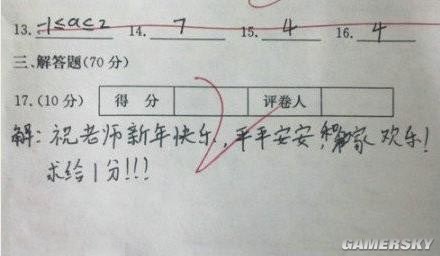 13. -1≤a≤2 14. 7 15. 4 16. 4
三、解答题(70分)
17.(10分) 得 分 评卷人
解：祝老师新年快乐，平平安安，阖家欢乐！
求给1分!!!
GAMERSKY